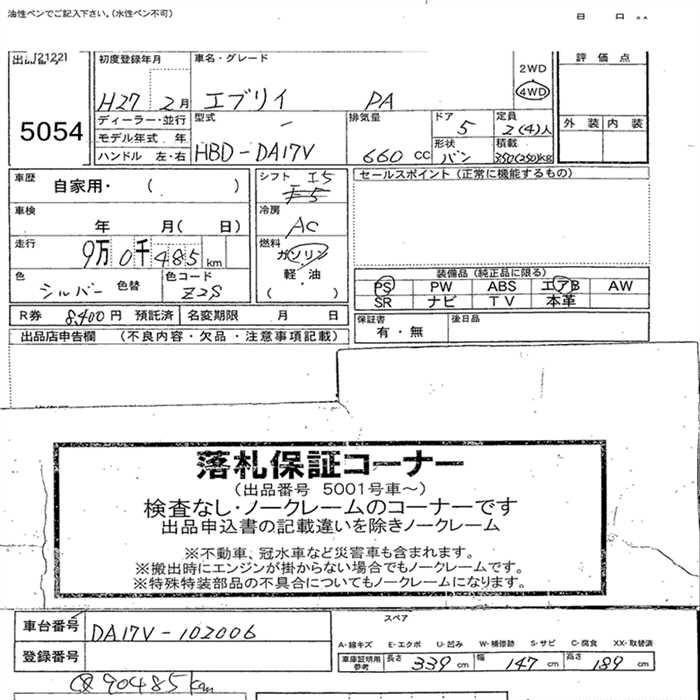 油性ペンでご記入下さい。(水性ペン不可)
月 日
出品
(2122)
5054
初度登録年月
H27 2月
車名・グレード
エブリイ PA
2WD
4WD
評価点
外装 内装
ディーラー・並行
モデル年式 年
ハンドル 左・右
型式
HBD-DA17V
排気量
660 cc
ドア
5
形状
バン
定員
2(4)人
積載
350(250)kg
車歴
自家用・( )
シフト I5
F5
セールスポイント(正常に機能するもの)
車検
年 月( 日)
冷房
AC
走行
9万0千485 km
燃料
ガソリン
軽・油
( )
色
シルバー 色替
色コード
Z2S
装備品(純正品に限る)
PS PW ABS エアB AW
SR ナビ TV 本革
R券 8,400円 預託済
名変期限 月 日
保証書
有・無
後日品
出品店申告欄 (不良内容・欠品・注意事項記載)
落札保証コーナー
(出品番号 5001号車~)
検査なし・ノークレームのコーナーです
出品申込書の記載違いを除きノークレーム
※不動車、冠水車など災害車も含まれます。
※搬出時にエンジンが掛からない場合でもノークレームです。
※特殊特装部品の不具合についてもノークレームになります。
車台番号 DA17V-102006
登録番号
スペア
A-線キズ E-エクボ U-凹み W-補修跡 S-サビ C-腐食 XX-取替済
車庫証明用参考 長さ 339 cm 幅 147 cm 高さ 189 cm
90485km